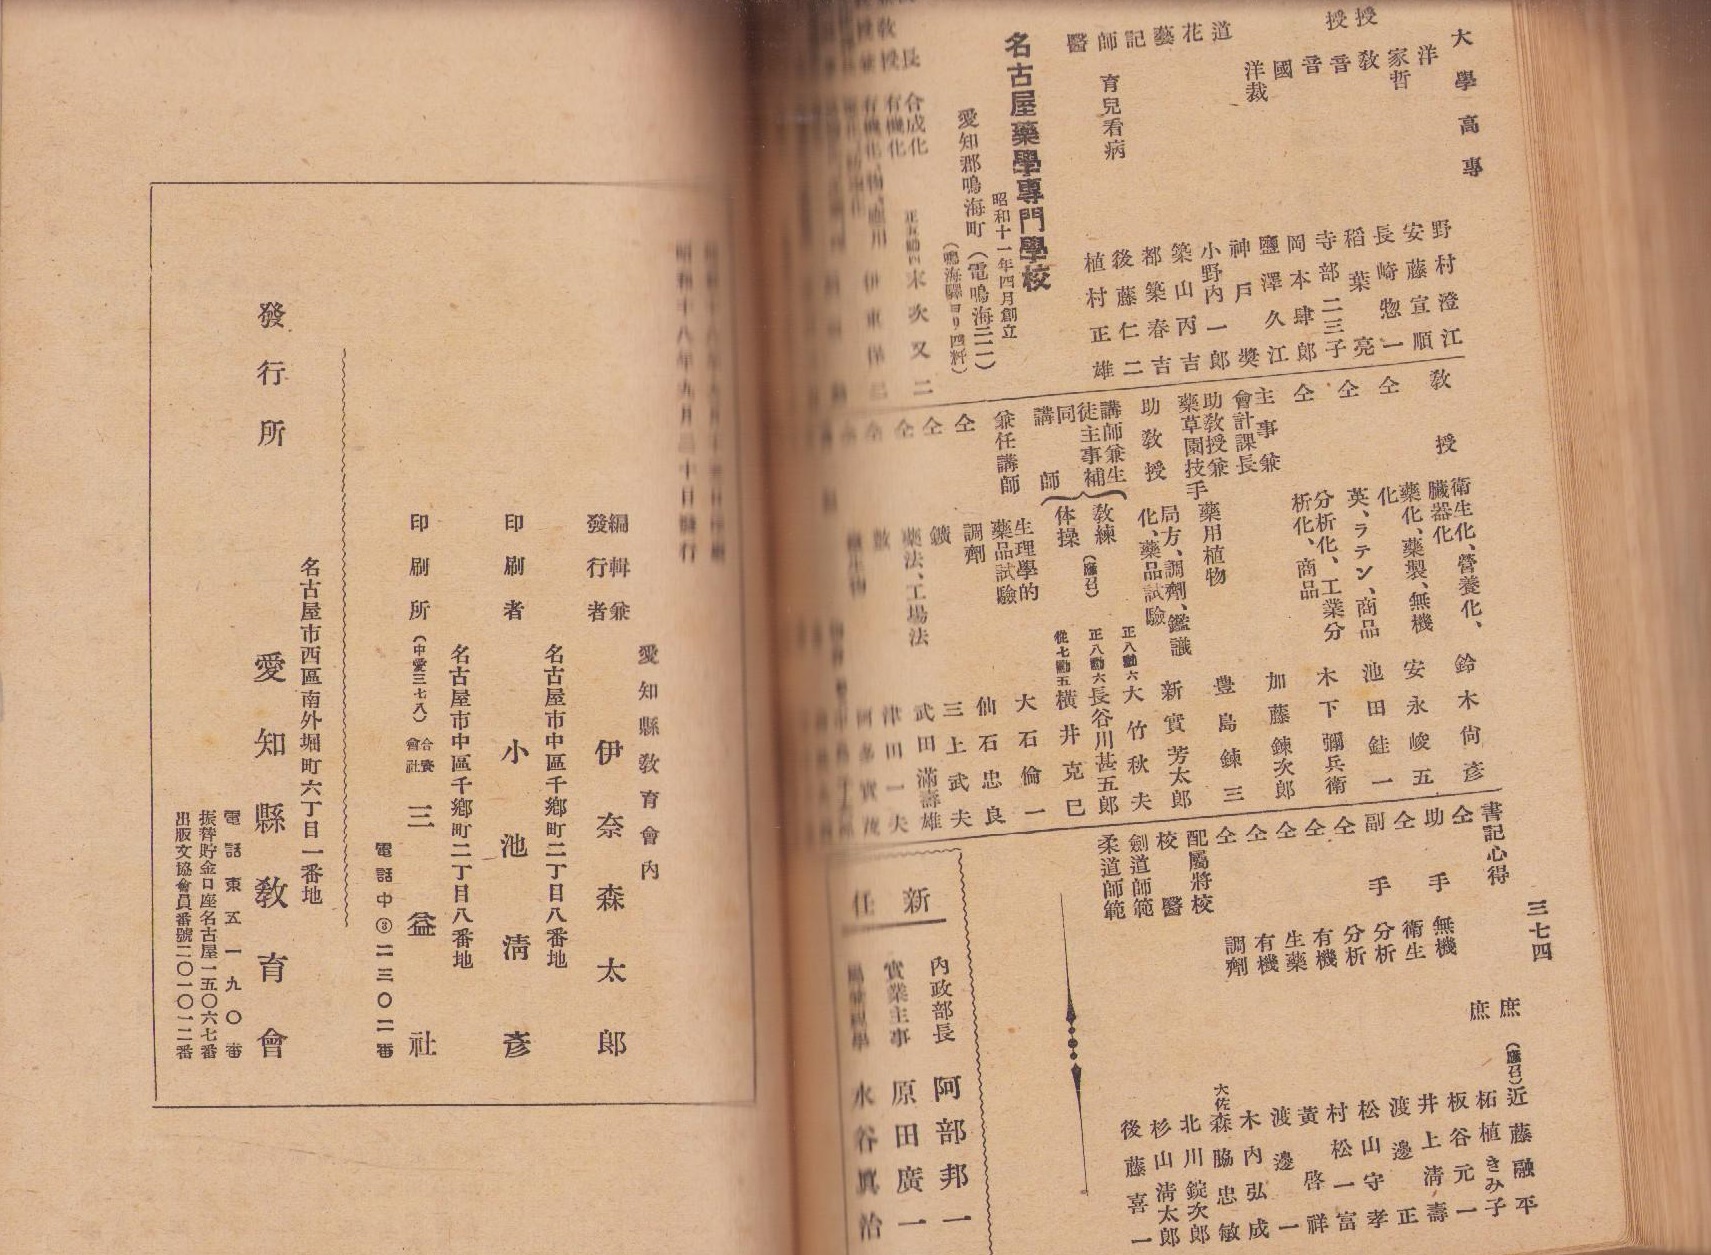 大學高專
三七四
洋 野村澄江
家哲 安藤宣順
敎 長崎惣一
授 音 稻葉亮
授 音 寺部二三子
國 岡本肆郎
洋裁 鹽澤久江
神戶奬
道 小野內一郎
花 築山丙吉
藝 都築春吉
記 後藤仁二
師 育兒看病
醫 植村正雄
名古屋藥學專門學校
昭和十一年四月創立
愛知郡鳴海町(電鳴海二一一)
(鳴海驛ヨリ四粁)
合成化 末次又二
有機化
伊東保二
敎授 衛生化、營養化、臟器化 鈴木尙彥
仝 藥化、藥製、無機化 安永峻五
仝 英、ラテン、商品 池田鮭一
仝 分析化、工業分析化、商品 木下彌兵衛
主事兼會計課長 加藤鍊次郎
助敎授兼藥草園技手 藥用植物 豊島鍊三
助敎授 局方、調劑、鑑識 新實芳太郎
化、藥品試驗 正八勳六 大竹秋夫
講師兼生徒主事補 敎練 (應召) 正八勳六 長谷川甚五郎
同 体操 從七勳五 橫井克巳
講師 生理學的藥品試驗 大石倫一
兼任講師 調劑 仙石忠良
仝 鑛 三上武夫
仝 藥法、工場法 武田滿壽雄
仝 數 津田一夫
書記心得 庶 (應召)近藤融平
仝 庶 柘植きみ子
助手 無機 板谷元一
仝 衛生 井上淸壽
副手 分析 渡邊正
仝 分析 松山守孝
仝 有機 村松一富
仝 生藥 黃啓祥
仝 有機 渡邊一
仝 調劑 木內弘成
配屬將校 大佐 森脇忠敏
校醫 北川錠次郎
劍道師範 杉山淸太郎
柔道師範 後藤喜一
新任
內政部長 阿部邦一
實業主事 原田廣一
水谷眞治
昭和十八年九月三十日發行
愛知縣敎育會內
編輯兼發行者 伊奈森太郎
名古屋市中區千鄕町二丁目八番地
印刷者 小池淸彥
名古屋市中區千鄕町二丁目八番地
印刷所(中愛三七八)合資會社 三益社
電話中③二三〇二番
名古屋市西區南外堀町六丁目一番地
發行所 愛知縣敎育會
電話東五一九〇番
振替貯金口座名古屋一五〇六七番
出版文協會員番號二〇一〇一二番